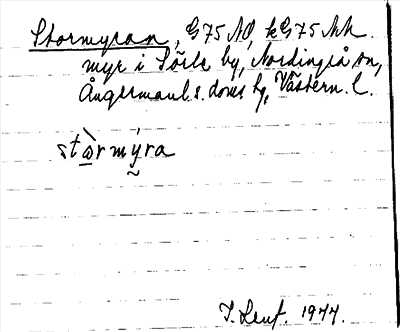 Stormyran, G75 NO, kG75 Nk.
myr i Sörle by, Nordingrå sn,
Ångermanl. s. doms h., Västern. l.
stɷ̀rmýra
1944.